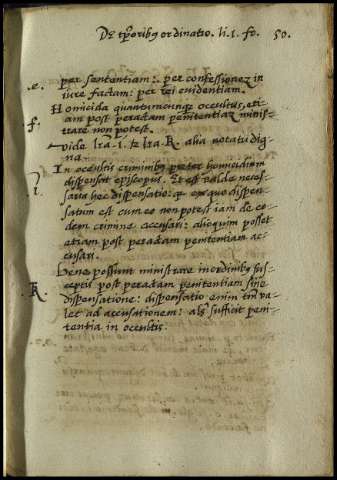 De tp̄oribꝰ ordinatio. li. I. fo. 50.
.e. per sententiam: per confessionez in
iure factam: per rei euidentiam.
f. Homicida quantumcunque occultus, eti-
am post peractam penitentiam minis-
trare non potest.
Vide lr̄a. I. & lr̄a. K alia notatu dig-
na.
I. In occultis criminibꝰ preter homicidium
dispensat episcopus. Et est valde neces-
saria hec dispensatio: ex quo dispen-
satum est cum eo non potest iam de eo-
dem crimine accusari: alioquim posset
etiam post peractam penitentiam ac-
cusari.
K Bene possunt ministrare in ordinibꝰ sus-
ceptis post peractam penitentiam sine
dispensatione: dispensatio enim tm̄ va-
let ad accusationem: als̄ sufficit peni-
tentia in occultis.